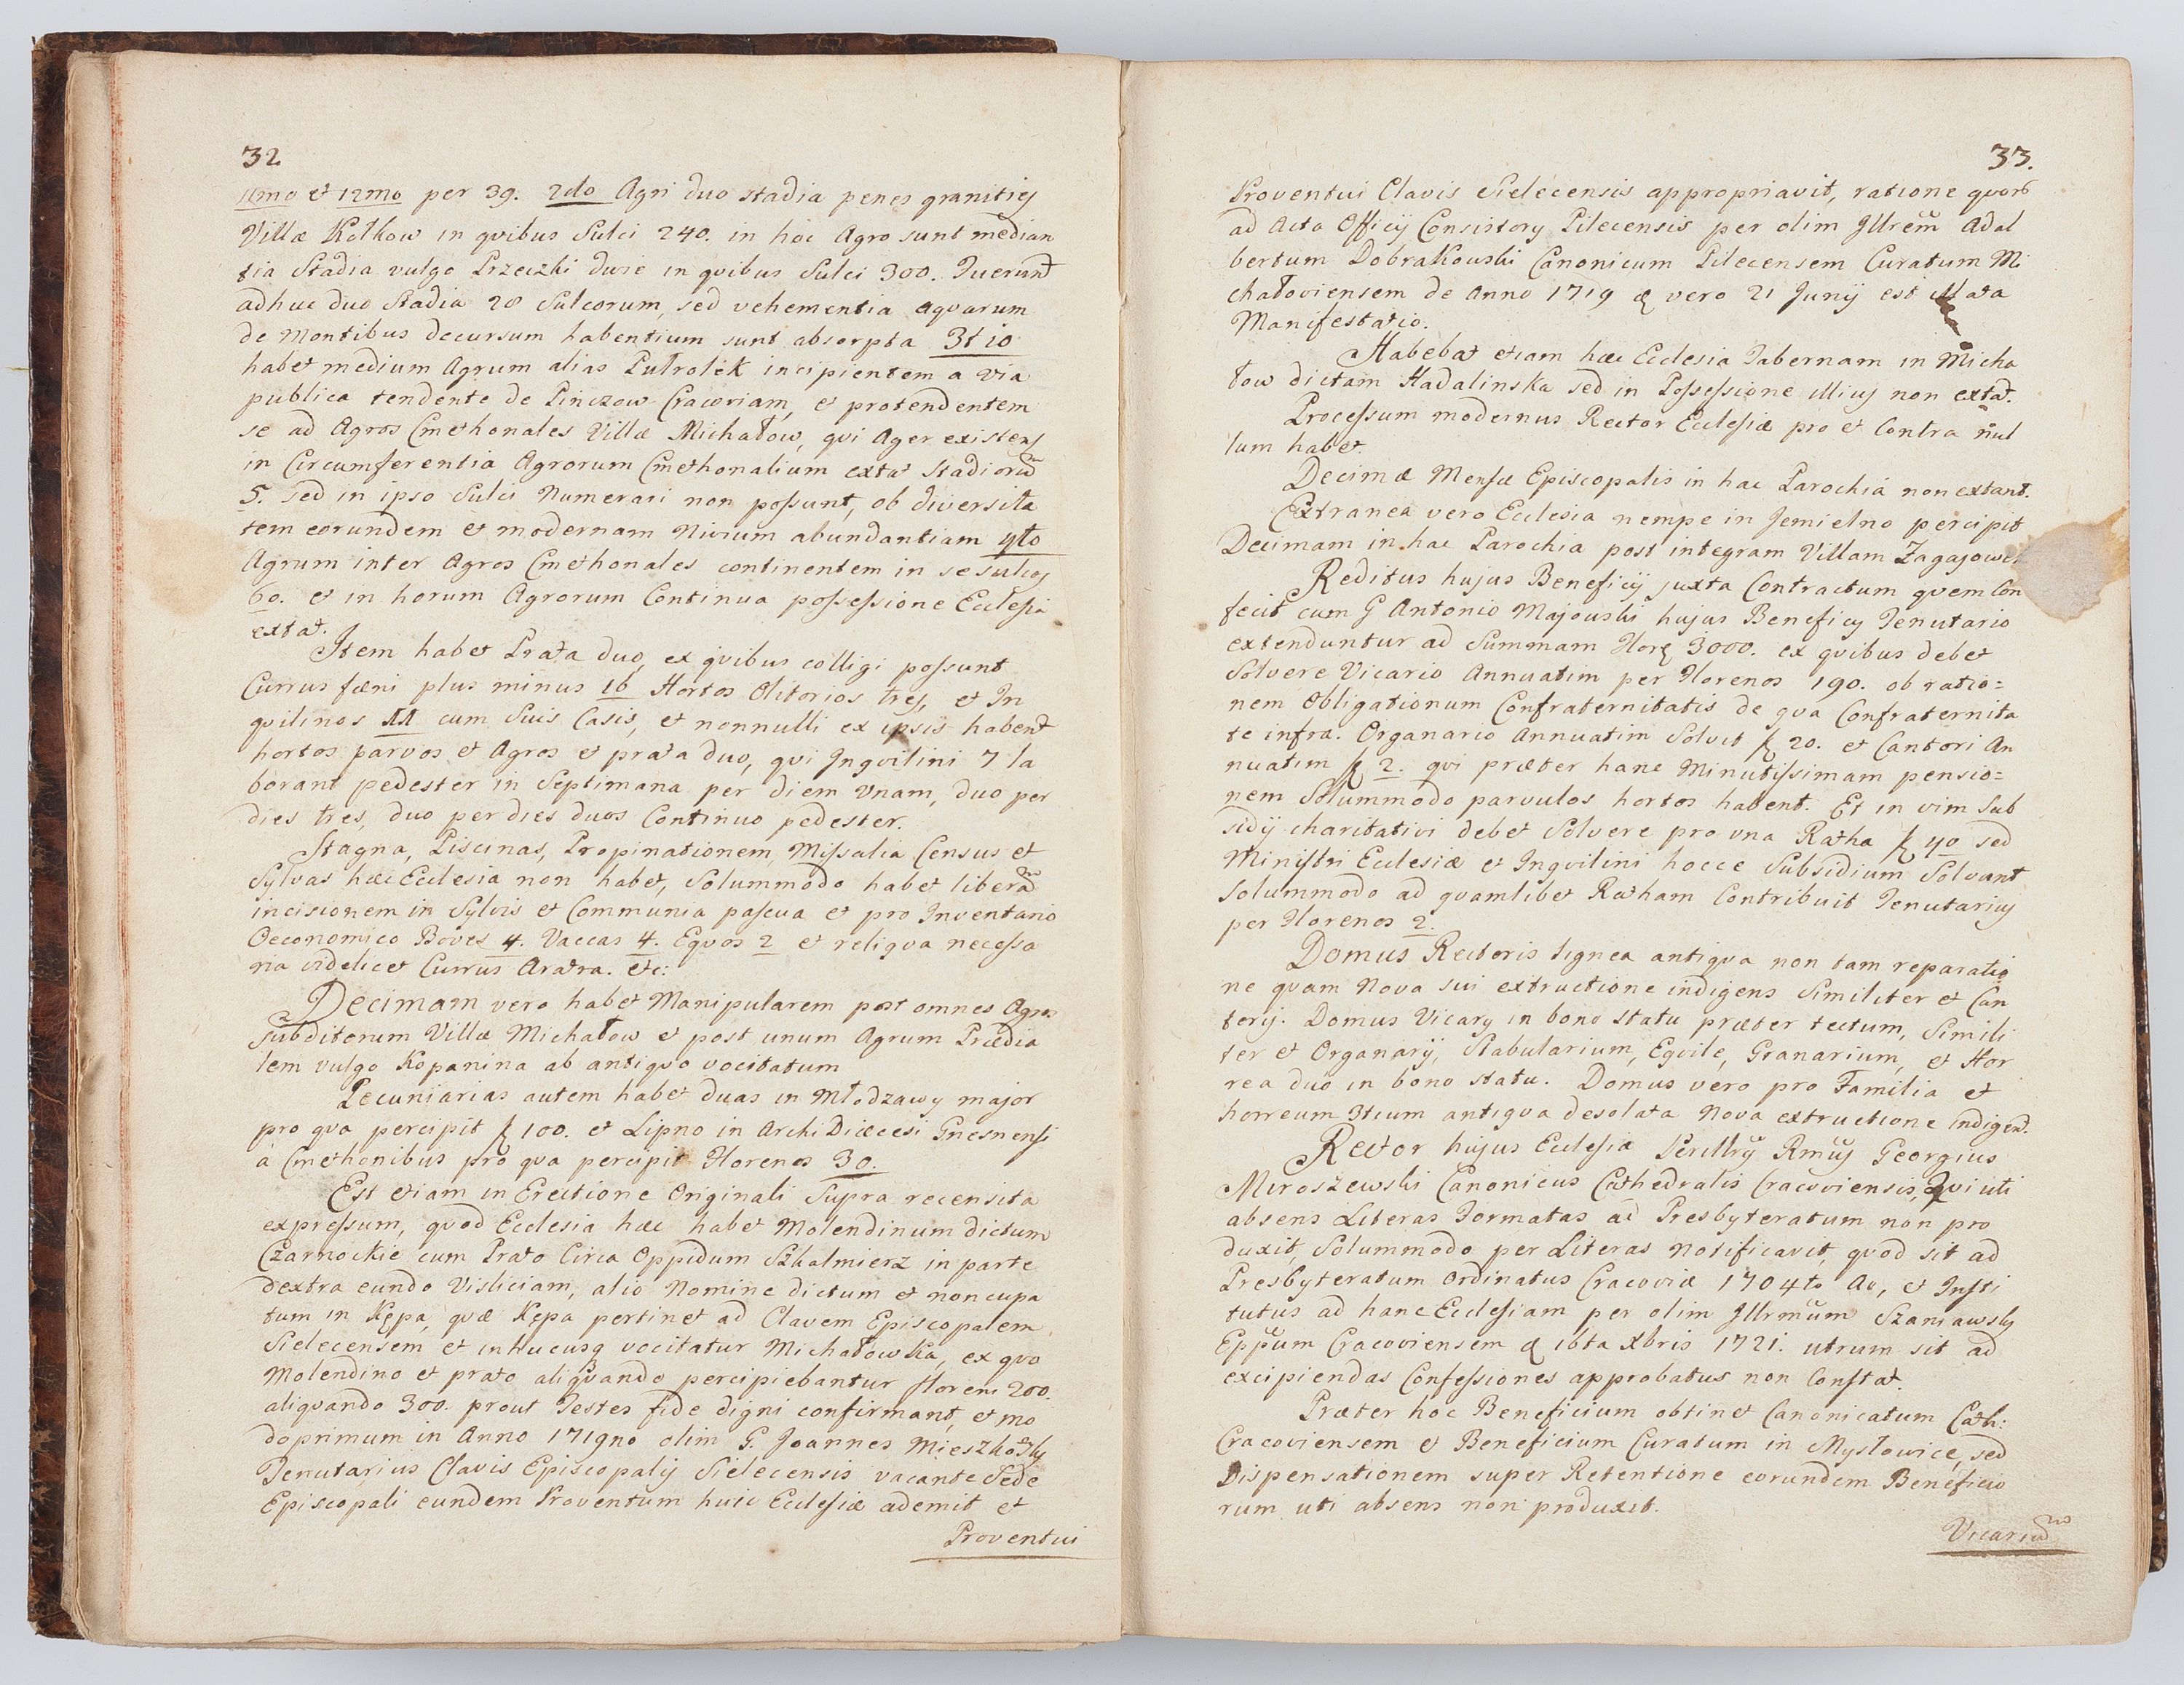 32
11mo et 12mo per 39. 2do Agri duo stadia penes granities
Villæ Kołkow in qvibus Sulci 240. in hoc Agro sunt median
tia Stadia vulgo Przeczki dwie in qvibus Sulci 300. Fuerunt
adhuc duo Stadia 20 Sulcorum, sed vehementia aqvarum
de Montibus decursum habentium sunt absorpta 3tio
habet medium Agrum alias Pułrolek incipientem a via
publica tendente de Pinczow Cracoviam, et protendentem
se ad Agros Cmethonales Villæ Michałow, qvi Ager existens
in Circumferentia Agrorum Cmethonalium extat Stadiorum
5. sed in ipso Sulci Numerari non possunt, ob diversita
tem eorundem et modernam Nivium abundantiam 4to
Agrum inter Agros Cmethonales continentem in se sulcos
60. et in horum Agrorum Continua possessione Ecclesia
extat.
Item habet Prata duo, ex qvibus colligi possunt
Currus fæni plus minus 16 Hortos Olitorios tres, et In
qvilinos 11 cum Suis Casis, et nonnulli ex ipsis habent
hortos parvos et Agros et prata duo, qvi Inqvilini 7 la
borant pedester in Septimana per diem unam, duo per
dies tres, duo per dies duos Continuo pedester.
Stagna, Piscinas, Propinationem, Missalia Census et
Sylvas hæc Ecclesia non habet, Solummodo habet liberam
incisionem in Sylvis et Communia pascua et pro Inventario
Oeconomico Boves 4. Vaccas 4. Eqvos 2 et reliqva necessa
ria videlicet Currus Aratra. etc:
Decimam vero habet Manipularem post omnes Agros
Subditorum Villæ Michałow et post unum Agrum Prædia
lem vulgo Kopanina ab antiqvo vocitatum
Pecuniarias autem habet duas in Młodzawy major
pro qva percipit f 100. et Lipno in Archi Diæcesi Gnesnensi
à Cmethonibus pro qva percipit Florenos 30.
Est etiam in Erectione Originali Supra recensita
expressum, qvod Ecclesia hæc habet Molendinum dictum
Czarnockie cum Prato Circa Oppidum Szkalmierz in parte
dextra eundo Visliciam, alio Nomine dictum et noncupa
tum in Kępa, qvæ Kępa pertinet ad Clavem Episcopalem
Sielecensem et inhucusq vocitatur Michałowska, ex qvo
Molendino et prato aliqvando percipiebantur floreni 200.
aliqvando 300. prout Testes fide digni confirmant, et mo
doprimum in Anno 1719no olim G. Joannes Mieszkowsky
Tenutarius Clavis Episcopalis Sielecensis vacante Sede
Episcopali eundem Proventum huic Ecclesiæ ademit et
Proventui
33.
Proventui Clavis Sielecensis appropriavit, ratione qvor
ad Acta Officij Consistory Pilecensis per olim Illrem Adal
bertum Dobrakowski Canonicum Pilecensem Curatum Mi
chałoviensem de Anno 1719 d vero 21 Junij est
Manifestatio.
Habebat etiam hæc Ecclesia Tabernam in Micha
łow dictam Hadalinska sed in Possessione illius non extat.
Processum modernus Rector Ecclesiæ pro et Contra nul
lum habet.
Decimæ Mensæ Episcopalis in hac Parochiá non extant.
Extranea vero Ecclesia nempe in Jemielno percipit
Decimam in hac Parochia post integram Villam
Reditus hujus Beneficij juxta Contractum qvem Con
fecit cum G Antonio Majowski hujus Beneficij Tenutario
extenduntur ad Summam Flor 3000. ex qvibus debet
Solvere Vicario Annuatim per Florenos 190. ob ratio=
nem Obligationum Confraternitatis de qva Confraternita
te infra. Organario Annuatim Solvit f 20. et Cantori An
nuatim f 2. qvi præter hanc Minutissimam pensio=
nem Solummodo parvulos hortos habent. Et in vim Sub
sidij charitativi debet Solvere pro una Ratha f 40 sed
Ministri Ecclesiæ et Inqvilini hocce Subsidium Solvunt
Solummodo ad qvamlibet Ratham Contribuit Tenutarius
per Florenos 2.
Domus Rectoris lignea antiqva non tam reparatio
ne qvam Nova sui extructione indigens Similiter et Can
torij. Domus Vicary in bono statu præter tectum, Simili
ter et Organarij, Stabularium, Eqvile, Granarium, et Hor
rea duo in bono statu. Domus vero pro Familia et
horreum 3tium antiqva desolata Nova extructione indigent.
Rector hujus Ecclesiæ Perillris Rmus Georgius
Mieroszewski Canonicus Cathedralis Cracoviensis, Qvi uti
absens Literas Formatas ad Presbyteratum non pro
duxit, Solummodo per Literas Notificavit, qvod sit ad
Presbyteratum Ordinatus Cracoviæ 1704to Ao, et Insti
tutus ad hanc Ecclesiam per olim Illrmum Szaniawsky
Eppum Cracoviensem d 16ta Xbris 1721. utrum sit ad
excipiendas Confessiones approbatus non Constat.
Præter hoc Beneficium obtinet Canonicatum Cath:
Cracoviensem et Beneficium Curatum in Mysłowice, sed
Dispensationem super Retentione eorundem Beneficio
rum uti absens non produxit.
Vicarium